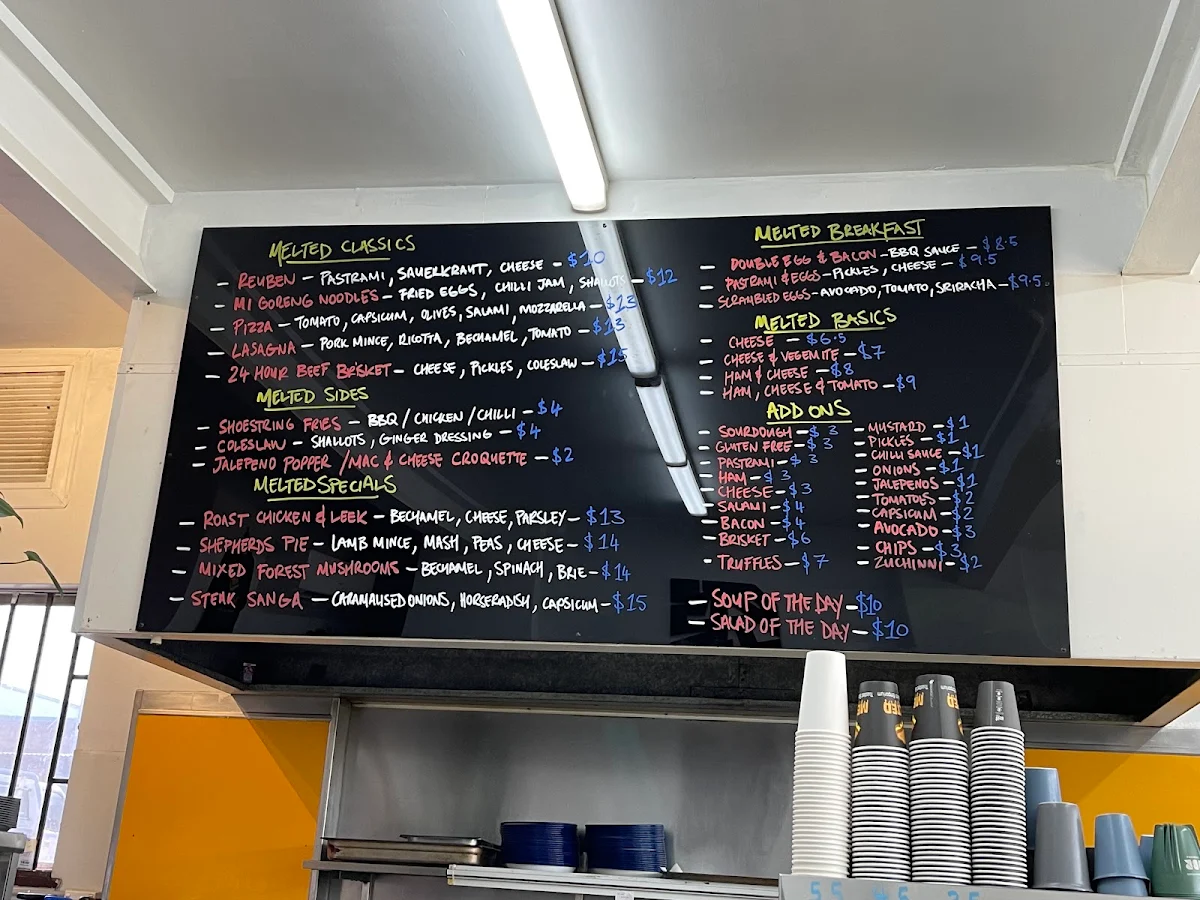 MELTED CLASSICS
– REUBEN – PASTRAMI, SAUERKRAUT, CHEESE – $10
– MI GORENG NOODLES – FRIED EGGS, CHILLI JAM, SHALLOTS – $12
– PIZZA – TOMATO, CAPSICUM, OLIVES, SALAMI, MOZZARELLA – $13
– LASAGNA – PORK MINCE, RICOTTA, BECHAMEL, TOMATO – $13
– 24 HOUR BEEF BRISKET – CHEESE, PICKLES, COLESLAW – $15
MELTED SIDES
– SHOESTRING FRIES – BBQ / CHICKEN / CHILLI – $4
– COLESLAW – SHALLOTS, GINGER DRESSING – $4
– JALEPENO POPPER / MAC & CHEESE CROQUETTE – $2
MELTED SPECIALS
– ROAST CHICKEN & LEEK – BECHAMEL, CHEESE, PARSLEY – $13
– SHEPHERDS PIE – LAMB MINCE, MASH, PEAS, CHEESE – $14
– MIXED FOREST MUSHROOMS – BECHAMEL, SPINACH, BRIE – $14
– STEAK SANGA – CARAMALISED ONIONS, HORSERADISH, CAPSICUM – $15
MELTED BREAKFAST
– DOUBLE EGG & BACON – BBQ SAUCE – $8.5
– PASTRAMI & EGGS – PICKLES, CHEESE – $9.5
– SCRAMBLED EGGS – AVOCADO, TOMATO, SRIRACHA – $9.5
MELTED BASICS
– CHEESE – $6.5
– CHEESE & VEGEMITE – $7
– HAM & CHEESE – $8
– HAM, CHEESE & TOMATO – $9
ADD ONS
– SOURDOUGH – $3
– GLUTEN FREE – $3
– PASTRAMI – $3
– HAM – $3
– CHEESE – $3
– SALAMI – $4
– BACON – $4
– BRISKET – $6
– TRUFFLES – $7
– MUSTARD – $1
– PICKLES – $1
– CHILLI SAUCE – $1
– ONIONS – $1
– JALEPENOS – $1
– TOMATOES – $2
– CAPSICUM – $2
– AVOCADO – $3
– CHIPS – $3
– ZUCHINNI – $2
– SOUP OF THE DAY – $10
– SALAD OF THE DAY – $10